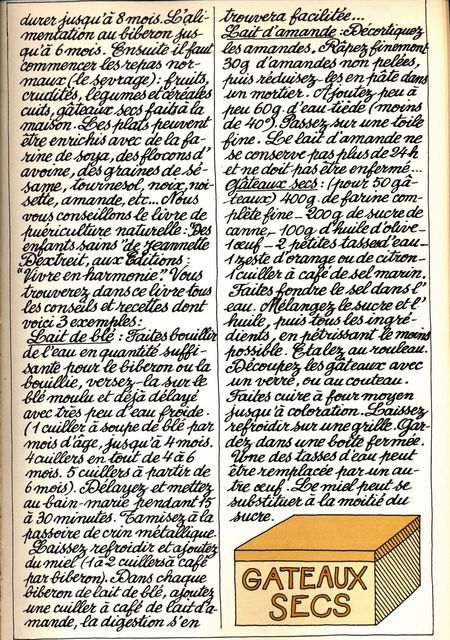 durer jusqu'à 8 mois. L'ali-
mentation au biberon jus-
qu'à 6 mois. Ensuite il faut
commencer les repas nor-
maux (le sevrage) : fruits,
crudités, légumes et céréales
cuits, gâteaux secs faits à la
maison. Les plats peuvent
être enrichis avec de la fa-
rine de soya, des flocons d'
avoine, des graines de sé-
same, tournesol, noix, noi-
sette, amande, etc... Nous
vous conseillons le livre de
puériculture naturelle : "Des
enfants sains" de Jeannette
Dextreit, aux Editions :
"Vivre en harmonie". Vous
trouverez dans ce livre tous
les conseils et recettes dont
voici 3 exemples :
Lait de blé : Faites bouillir
de l'eau en quantité suffi-
sante pour le biberon ou la
bouillie, versez-la sur le
blé moulu et déjà délayé
avec très peu d'eau froide.
(1 cuiller à soupe de blé par
mois d'âge, jusqu'à 4 mois.
4 cuillers en tout de 4 à 6
mois. 5 cuillers à partir de
6 mois). Délayez et mettez
au bain-marie pendant 15
à 30 minutes. Tamisez à la
passoire de crin métallique.
Laissez refroidir et ajoutez
du miel (1 à 2 cuillers à café
par biberon). Dans chaque
biberon de lait de blé, ajoutez
une cuiller à café de lait d'a-
mande, la digestion s'en
trouvera facilitée...
Lait d'amande : Décortiquez
les amandes. Râpez finement
30g d'amandes non pelées,
puis réduisez-les en pâte dans
un mortier. Ajoutez peu à
peu 60g d'eau tiède (moins
de 40°). Passez sur une toile
fine. Le lait d'amande ne
se conserve pas plus de 24h
et ne doit pas être enfermé...
Gâteaux secs : (pour 50 gâ-
teaux) 400g de farine com-
plète fine - 200g de sucre de
canne - 100g d'huile d'olive -
1 œuf - 2 petites tasses d'eau -
1 zeste d'orange ou de citron -
1 cuiller à café de sel marin.
Faites fondre le sel dans l'
eau. Mélangez le sucre et l'
huile, puis tous les ingré-
dients, en pétrissant le moins
possible. Etalez au rouleau.
Découpez les gâteaux avec
un verre, ou au couteau.
Faites cuire à four moyen
jusqu'à coloration. Laissez
refroidir sur une grille. Gar-
dez dans une boîte fermée.
Une des tasses d'eau peut
être remplacée par un au-
tre œuf. Le miel peut se
substituer à la moitié du
sucre.
GATEAUX
SECS